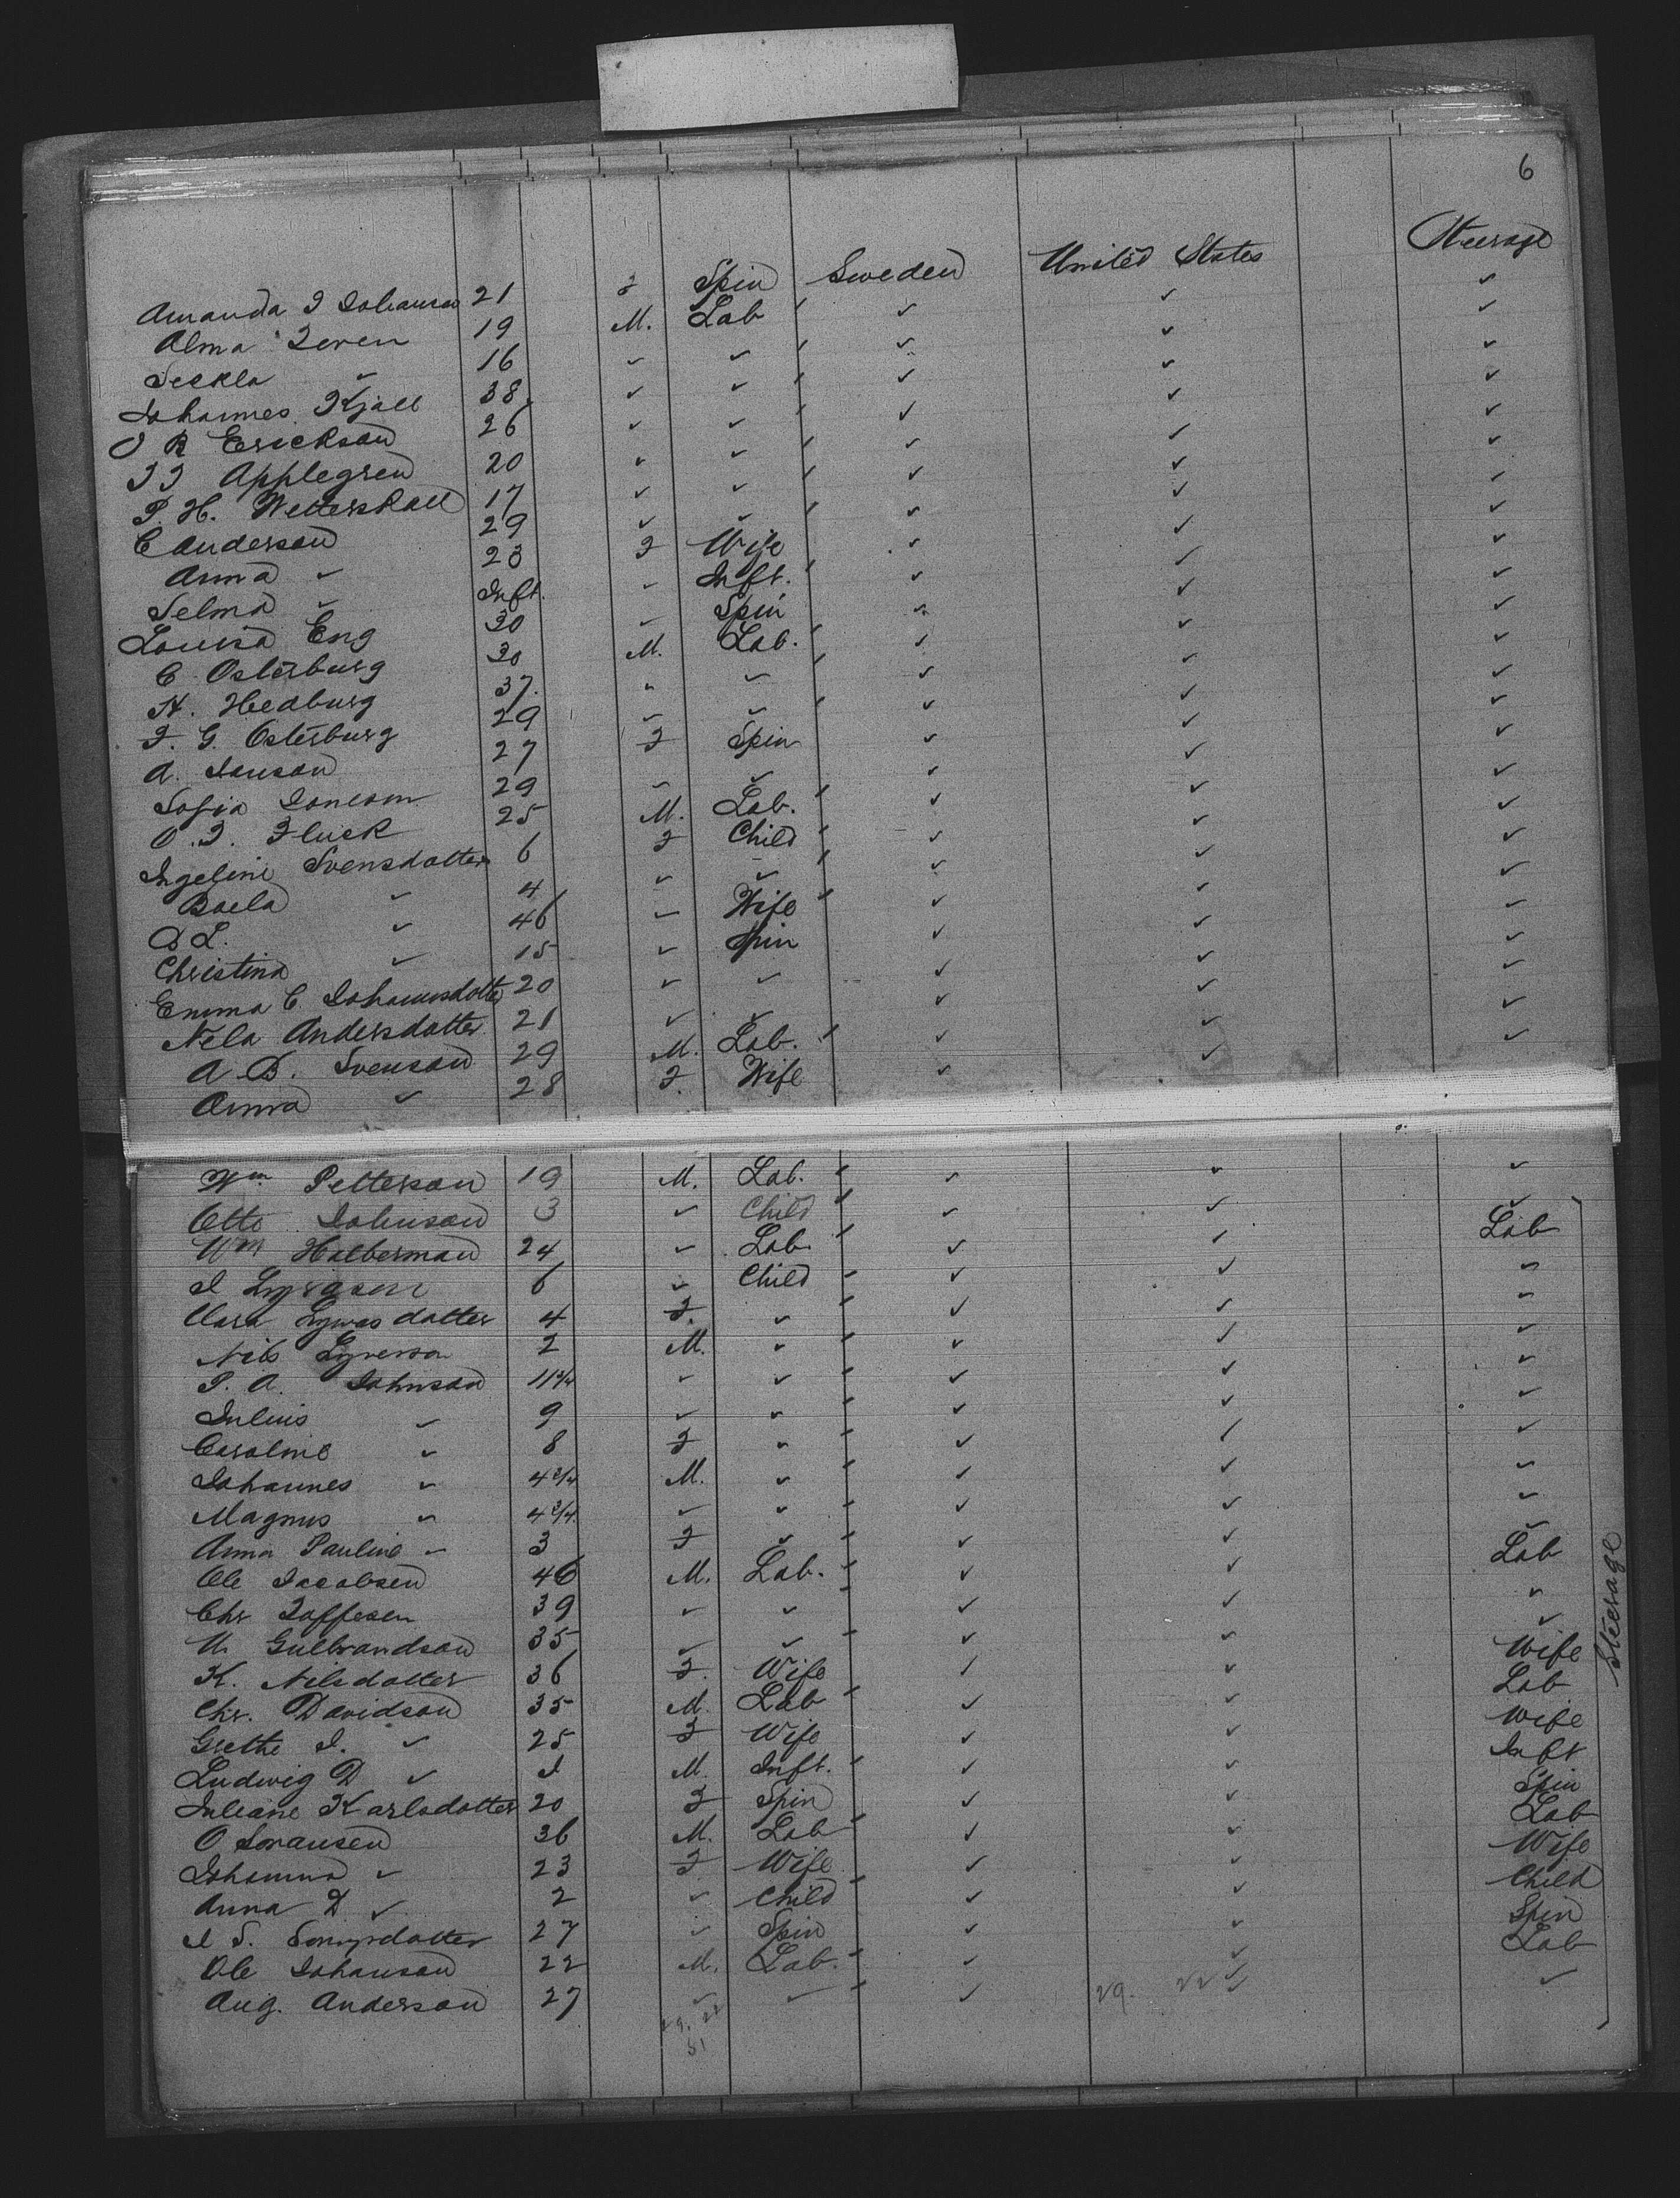 6
Amanda J Johanson 21 F Spin Sweden United States Steerage
Alma 19 M. Lab ✓ ✓ ✓
✓ 16 ✓ ✓ ✓ ✓ ✓
Johannes 38 ✓ ✓ ✓ ✓ ✓
O R Erickson 26 ✓ ✓ ✓ ✓ ✓
Applegren 20 ✓ ✓ ✓ ✓ ✓
P. H. 17 ✓ ✓ ✓ ✓ ✓
C Anderson 29 ✓ ✓ ✓ ✓ ✓
Anna ✓ 23 F Wife ✓ ✓ ✓
Selma ✓ Inft. ✓ Inft. ✓ ✓ ✓
Louisa Eng 30 ✓ Spin ✓ ✓ ✓
C Osterburg 30 M. Lab. ✓ ✓ ✓
N. Hedburg 37. ✓ ✓ ✓ ✓ ✓
F. G. Osterburg 29 ✓ ✓ ✓ ✓ ✓
A. Jonson 27 F Spin ✓ ✓ ✓
Sofia 29 ✓ ✓ ✓ ✓ ✓
O. F. Fluck 25 M. Lab. ✓ ✓ ✓
Ingeline Svensdotter 6 F Child ✓ ✓ ✓
Boela ✓ 4 ✓ ✓ ✓ ✓ ✓
B L. ✓ 46 ✓ Wife ✓ ✓ ✓
Christina ✓ 15 ✓ Spin ✓ ✓ ✓
Emma C Johannsdotter 20 ✓ ✓ ✓ ✓ ✓
Nela Andersdotter 21 ✓ ✓ ✓ ✓ ✓
A. B. Svenson 29 M. Lab. ✓ ✓ ✓
Anna ✓ 28 F. Wife ✓ ✓
Wm Petterson 19 M. Lab. ✓ ✓ ✓
Otto Johnson 3 ✓ Child ✓ ✓ ✓
Wm Halberman 24 ✓ Lab. ✓ ✓ Lab
6 ✓ Child ✓ ✓ ✓
Clara 4 F. ✓ ✓ ✓ ✓
Nils 2 M. ✓ ✓ ✓ ✓
P. A. Johnson 11 3/4 ✓ ✓ ✓ ✓ ✓
Julius ✓ 9 ✓ ✓ ✓ ✓ ✓
Caroline ✓ 8 F ✓ ✓ ✓ ✓
Johannes ✓ 4 3/4 M. ✓ ✓ ✓ ✓
Magnus ✓ 4 3/4 ✓ ✓ ✓ ✓ ✓
Anna Pauline ✓ 3 F ✓ ✓ ✓ ✓
Ole Jacobsen 46 M. Lab. ✓ ✓ Lab
Chr 39 ✓ ✓ ✓ ✓ ✓
Gulbrandson 35 ✓ ✓ ✓ ✓ ✓
K. Nilsdotter 36 F. Wife ✓ ✓ Wife
Chr. Davidson 35 M. Lab ✓ ✓ Lab
Grethe J. ✓ 25 F Wife ✓ ✓ Wife
Ludwig D ✓ 1 M. Inft. ✓ ✓ Inft
Juliane Karlsdotter 20 F Spin ✓ ✓ Spin
O 36 M. Lab ✓ ✓ Lab
Johanna ✓ 23 F Wife ✓ ✓ Wife
Anna D ✓ 2 ✓ Child ✓ ✓ Child
27 ✓ Spin ✓ ✓ Spin
Ole Johanson 22 M. Lab. ✓ ✓ Lab
Aug. Anderson 27 ✓ ✓ ✓ 29. 22 ✓ ✓
Steerage